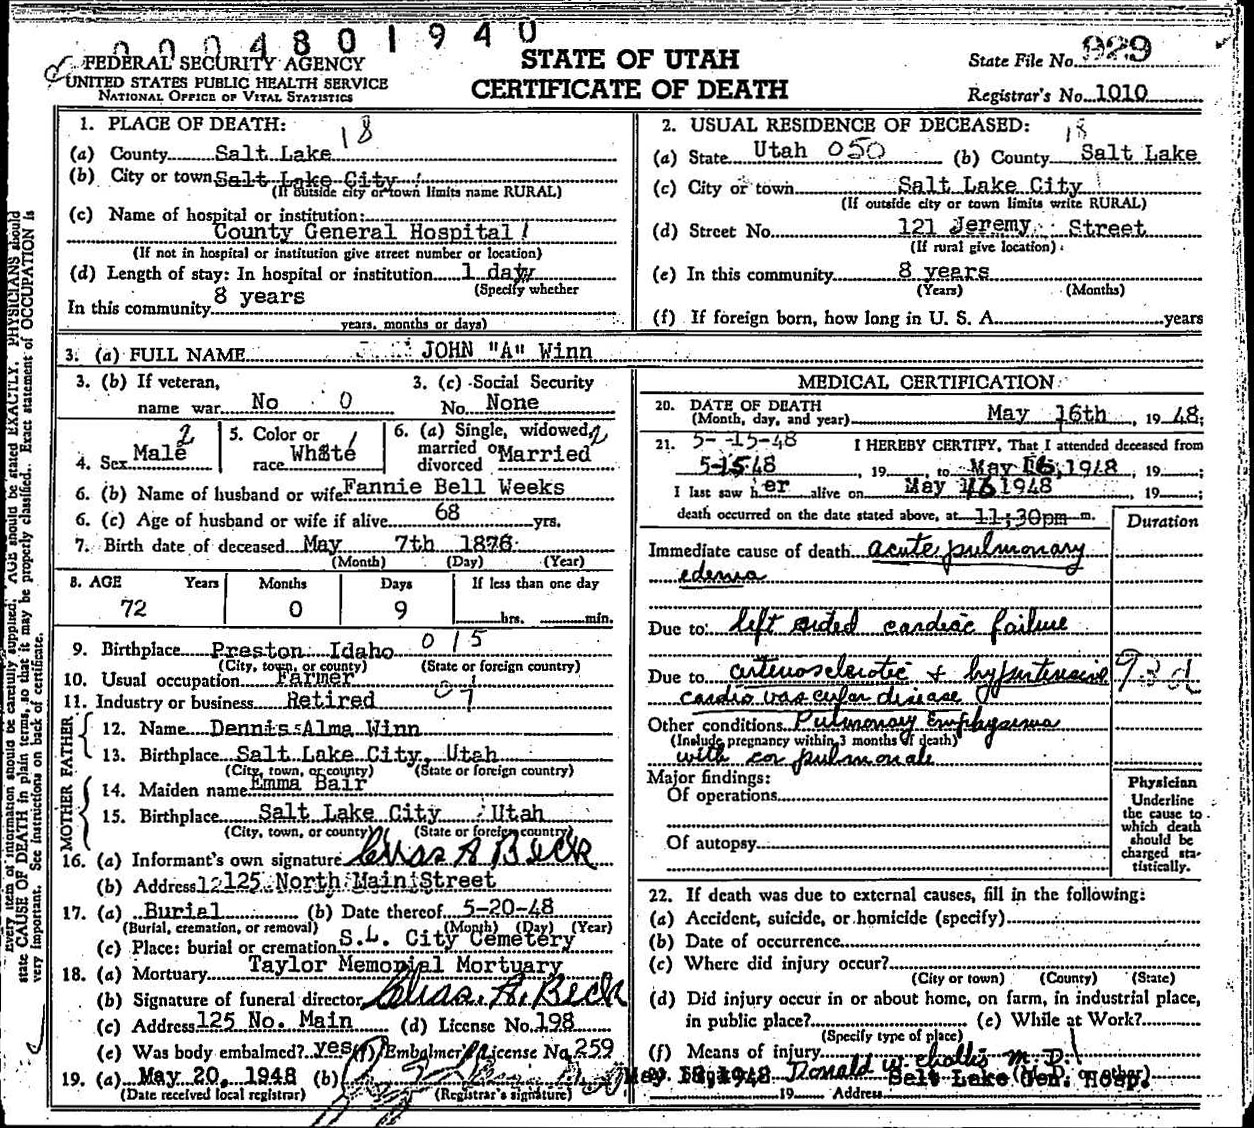 0004801940
FEDERAL SECURITY AGENCY
UNITED STATES PUBLIC HEALTH SERVICE
NATIONAL OFFICE OF VITAL STATISTICS
STATE OF UTAH
CERTIFICATE OF DEATH
State File No. 929
Registrar's No. 1010
1. PLACE OF DEATH: 18
(a) County Salt Lake
(b) City or town Salt Lake City
(If outside city or town limits name RURAL)
(c) Name of hospital or institution:
County General Hospital
(If not in hospital or institution give street number or location)
(d) Length of stay: In hospital or institution 1 day
(Specify whether
In this community 8 years
years, months or days)
2. USUAL RESIDENCE OF DECEASED: 18
(a) State Utah 050 (b) County Salt Lake
(c) City or town Salt Lake City
(If outside city or town limits write RURAL)
(d) Street No. 121 Jeremy Street
(If rural give location)
(e) In this community 8 years
(Years) (Months)
(f) If foreign born, how long in U. S. A. years
3. (a) FULL NAME JOHN "A" Winn
3. (b) If veteran,
name war No 0
3. (c) Social Security
No. None
4. Sex Male 2
5. Color or
race White
6. (a) Single, widowed, 2
married or Married
divorced
6. (b) Name of husband or wife Fannie Bell Weeks
6. (c) Age of husband or wife if alive 68 yrs.
7. Birth date of deceased May 7th 1876
(Month) (Day) (Year)
8. AGE Years Months Days If less than one day
72 0 9 hrs. min.
9. Birthplace Preston Idaho 015
(City, town, or county) (State or foreign country)
10. Usual occupation Farmer
11. Industry or business Retired 07
FATHER
12. Name Dennis Alma Winn
13. Birthplace Salt Lake City, Utah
(City, town, or county) (State or foreign country)
MOTHER
14. Maiden name Emma Bair
15. Birthplace Salt Lake City Utah
(City, town, or county) (State or foreign country)
16. (a) Informant's own signature Chas A Beck
(b) Address 125 North Main Street
17. (a) Burial (b) Date thereof 5-20-48
(Burial, cremation, or removal) (Month) (Day) (Year)
(c) Place: burial or cremation S.L. City Cemetery
18. (a) Mortuary Taylor Memorial Mortuary
(b) Signature of funeral director Chas. A. Beck
(c) Address 125 No. Main (d) License No. 198
(e) Was body embalmed? yes (f) Embalmer's License No. 259
19. (a) May 20, 1948 (b)
(Date received local registrar) (Registrar's signature)
MEDICAL CERTIFICATION
20. DATE OF DEATH
(Month, day, and year) May 16th, 19 48;
21. 5-15-48 I HEREBY CERTIFY, That I attended deceased from
5-15 48, 19 , to May 16, 1948, 19 ;
I last saw her alive on May 16 1948, 19 ;
death occurred on the date stated above, at 11:30pm m.
Duration
Immediate cause of death acute pulmonary
edema
Due to: left sided cardiac failure
Due to arteriosclerotic + hypertensive 93d
cardiovascular disease
Other conditions Pulmonary Emphysema
(Include pregnancy within 3 months of death)
with cor pulmonale
Major findings:
Of operations
Of autopsy
Physician
Underline
the cause to
which death
should be
charged sta-
tistically.
22. If death was due to external causes, fill in the following:
(a) Accident, suicide, or homicide (specify)
(b) Date of occurrence
(c) Where did injury occur?
(City or town) (County) (State)
(d) Did injury occur in or about home, on farm, in industrial place,
in public place? (e) While at Work?
(Specify type of place)
(f) Means of injury
May 18, 1948 Donald W Challis M.D.
Salt Lake Gen. Hosp.
19 Address
Every item of information should be carefully supplied. AGE should be stated EXACTLY. PHYSICIANS should
state CAUSE OF DEATH in plain terms, so that it may be properly classified. Exact statement of OCCUPATION is
very important. See instructions on back of certificate.